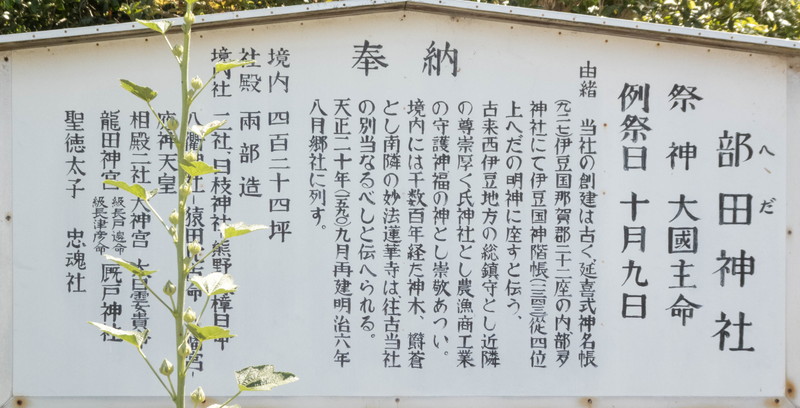 へだ
部田神社
祭神 大國主命
例祭日 十月九日
奉納
由緒 当社の創建は古く、延喜式神名帳
(九二七)伊豆国那賀郡二十二座の内部多
神社にて伊豆国神階帳(一三四三)従四位
上へだの明神に座すと伝う、
古来西伊豆地方の総鎮守とし近隣
の尊崇厚く氏神社とし農漁商工業
の守護神福の神とし崇敬あつい。
境内には千数百年経た神木、欝蒼
とし南隣の妙法蓮華寺は往古当社
の別当なるべしと伝へられる。
天正二十年(一五九〇)九月再建明治六年
八月郷社に列す。
境内 四百二十四坪
社殿 両部造
境内社 二社、日枝神社 熊野 樟日命
八衢神社 猿田
天神天皇
相殿二社 大神宮 大己霊貴
龍田神宮 級長戸邉命 級長津彦命 厩戸神社
聖徳太子 忠魂社